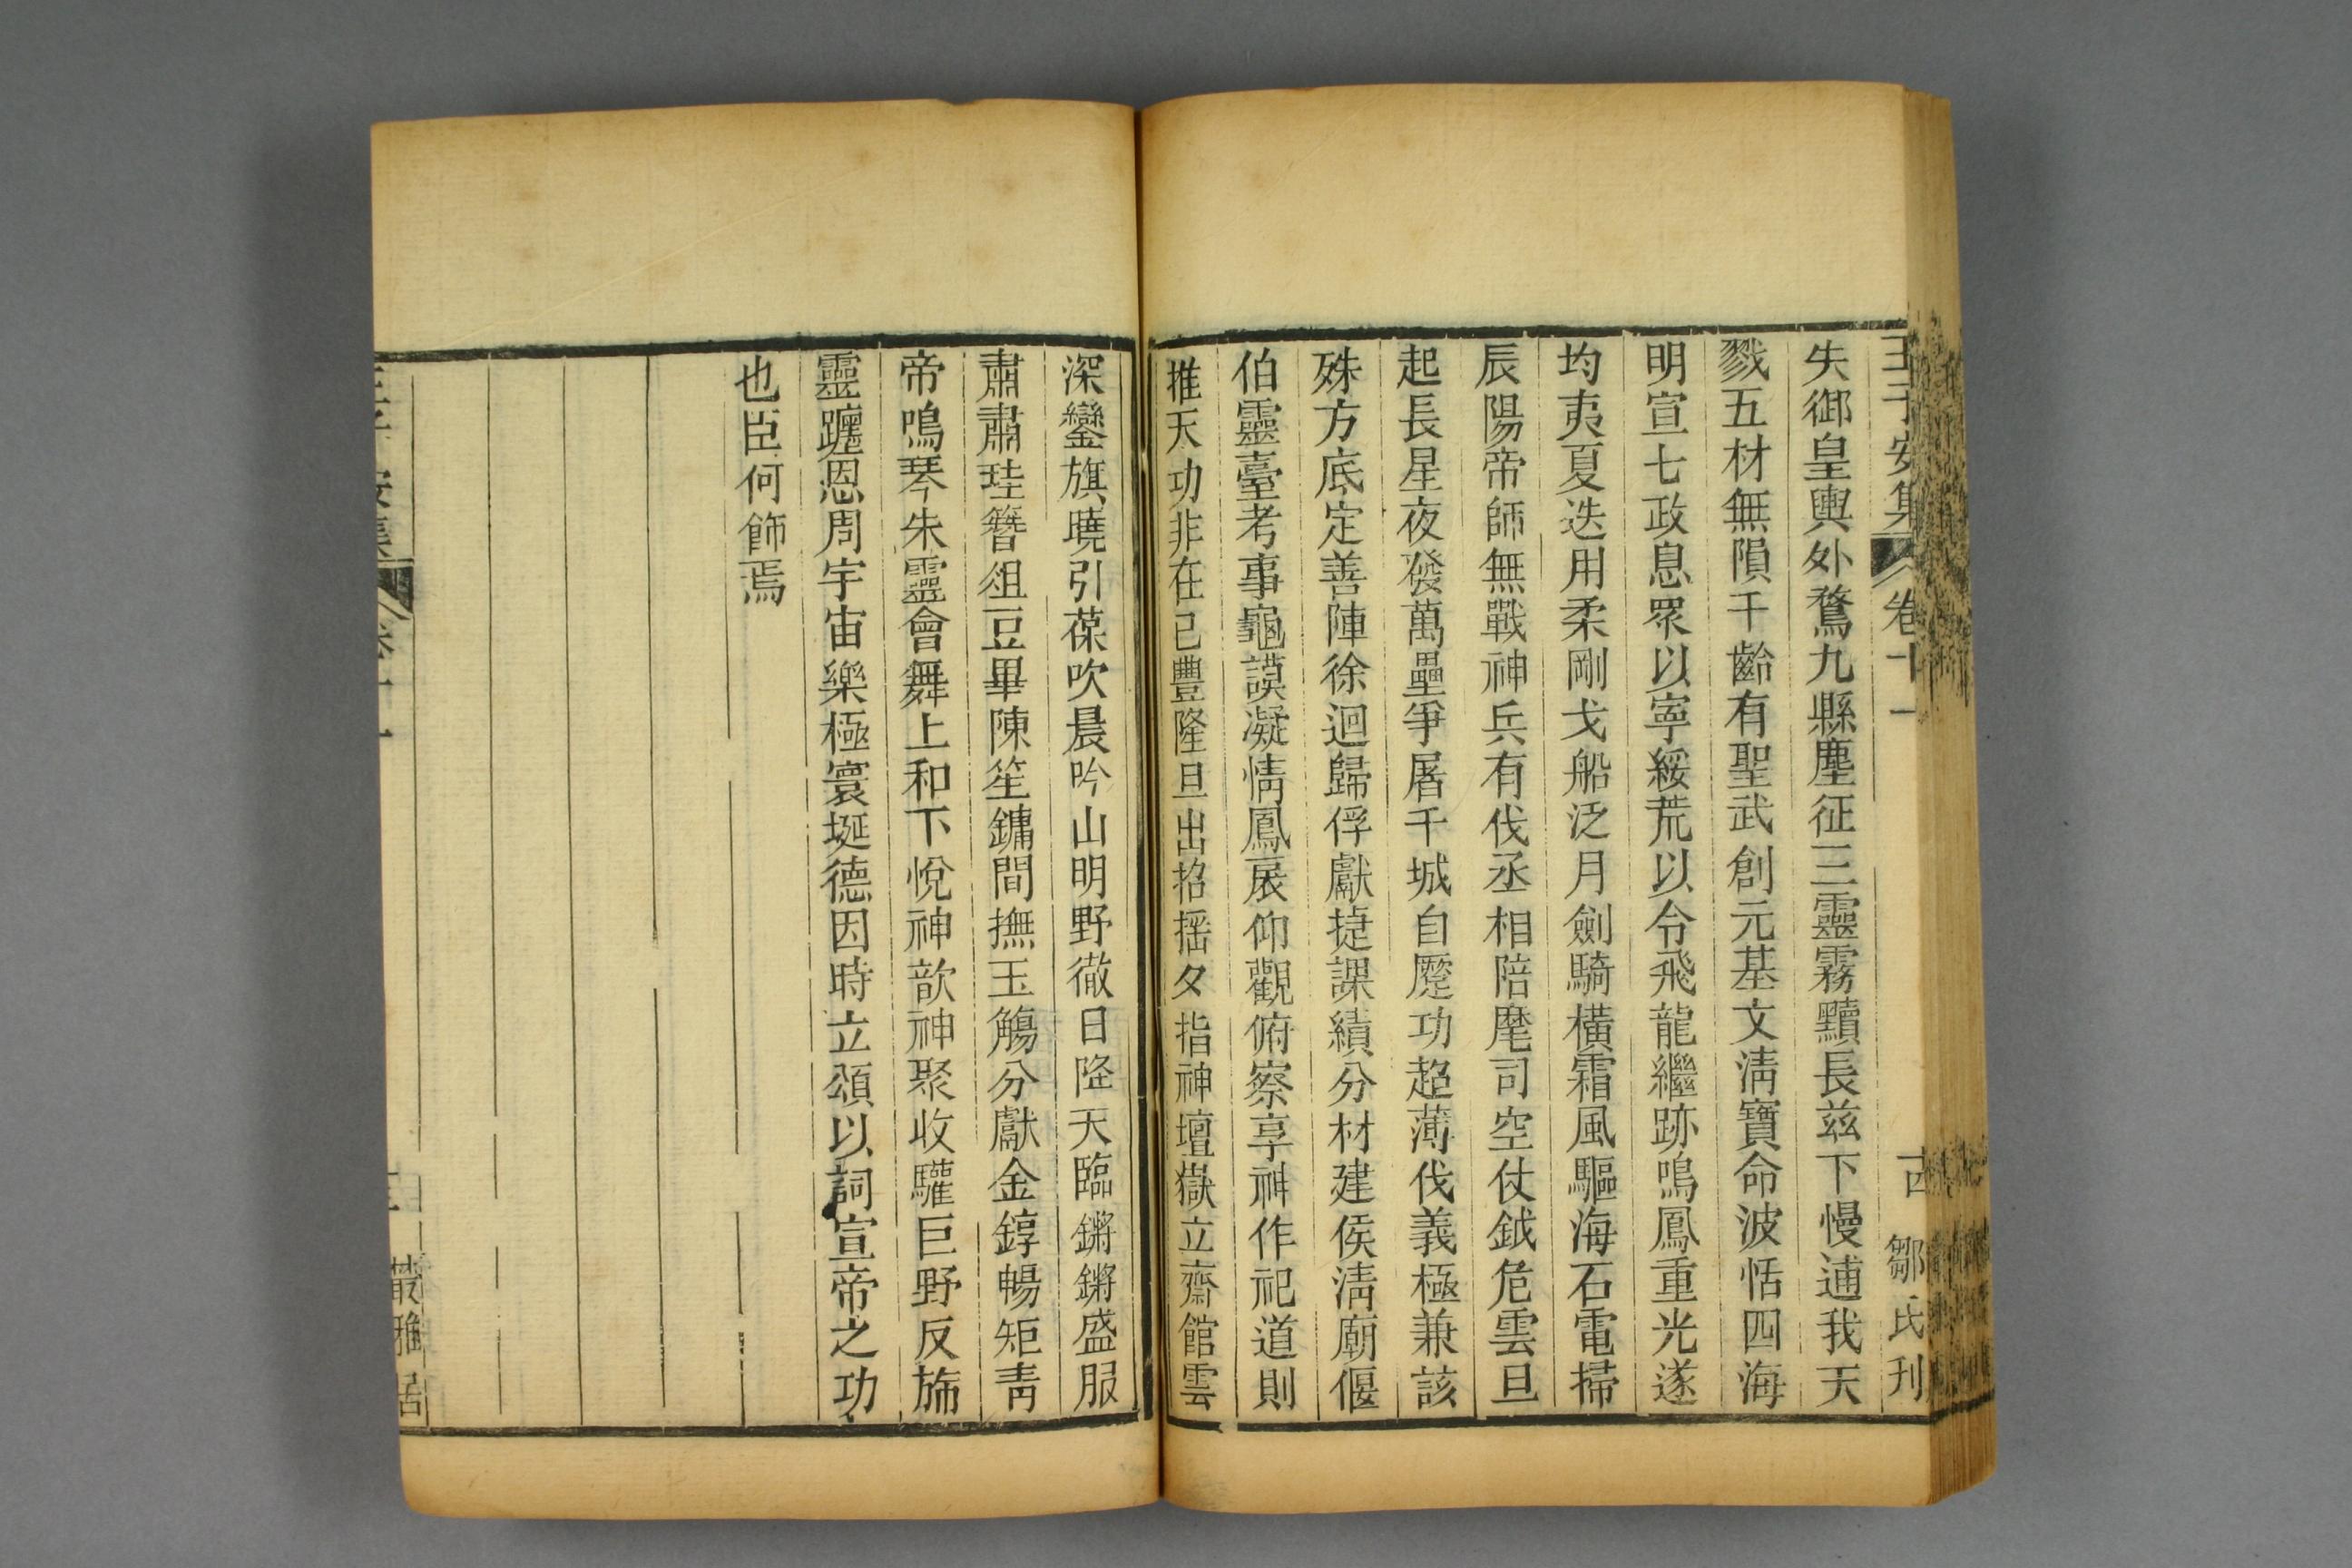 王子安集 卷十一 古 鄒氏刊
失御皇輿外鶩九縣塵征三靈霧黷長兹下慢逋我天
戮五材無隕千齡有聖武創元基文清寶命波恬四海
明宣七政息眾以寧綏荒以令飛龍繼跡鳴鳳重光遂
均夷夏迭用柔剛戈船泛月劍騎橫霜風驅海石電掃
辰陽帝師無戰神兵有伐丞相陪麾司空仗鉞危雲旦
起長星夜發萬壘爭屠千城自蹙功超薄伐義極兼該
殊方底定善陣徐迴歸俘獻捷課績分材建侯清廟偃
伯靈臺考事龜謨凝情鳳扆仰觀俯察享神作祀道則
推天功非在己豐隆旦出招搖夕指神壇嶽立齋館雲
深鑾旗曉引葆吹晨吟山明野徹日降天臨鏘鏘盛服
肅肅珪簪俎豆畢陳笙鏞間撫玉觴分獻金錞暢矩青
帝鳴琴朱靈會舞上和下悅神歆神聚收驩巨野反旆
靈躔恩周宇宙樂極寰埏德因時立頌以詞宣帝之功
也臣何飾焉
叢雅居